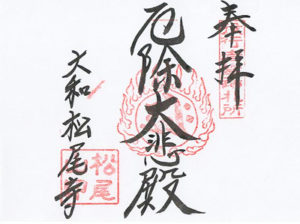 奉拝
厄除大悲殿
大和松尾寺
松尾